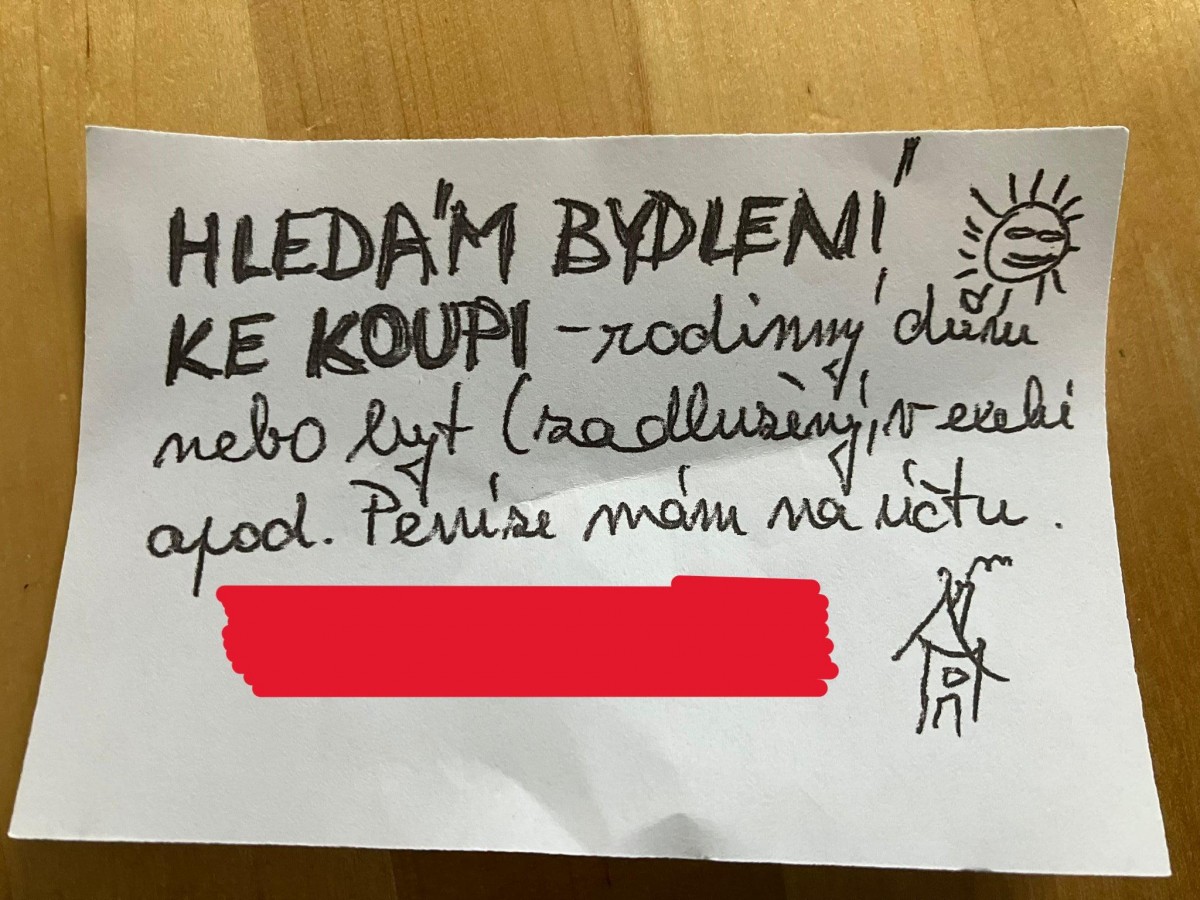 HLEDÁM BYDLENÍ
KE KOUPI - rodinný dům
nebo byt (zadlužený, v exeki
apod. Peníze mám na účtu.